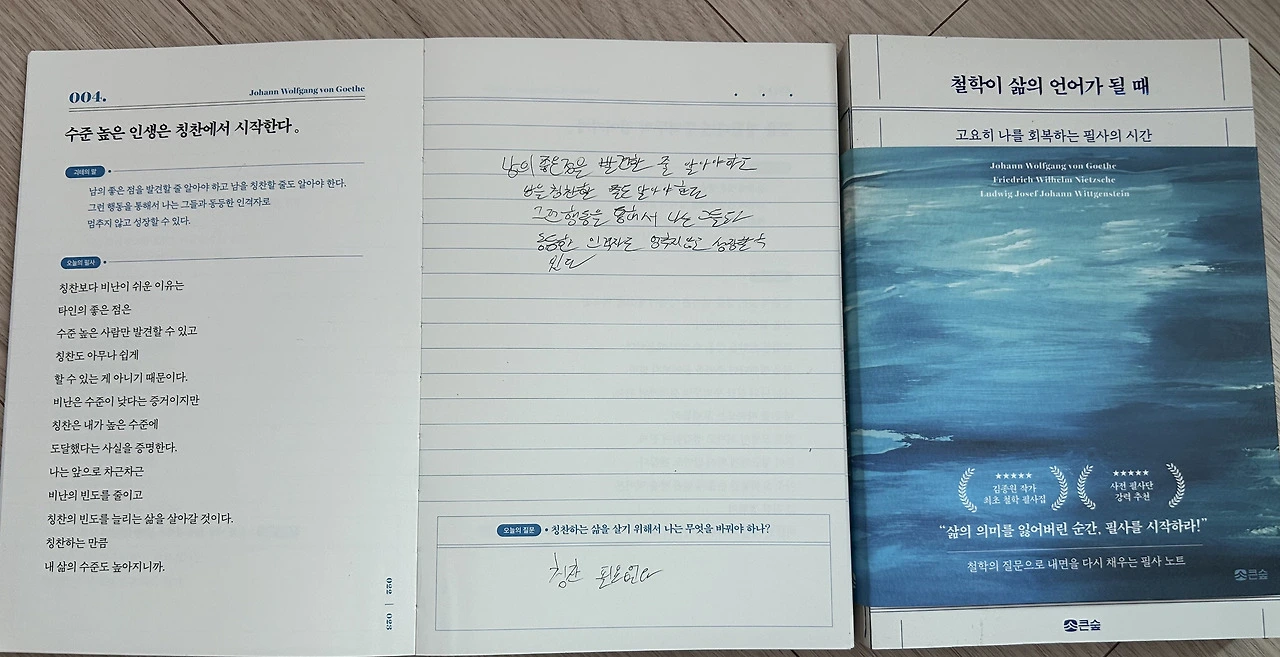 004.
Johann Wolfgang von Goethe
수준 높은 인생은 칭찬에서 시작한다.
괴테의 말
남의 좋은 점을 발견할 줄 알아야 하고 남을 칭찬할 줄도 알아야 한다.
그런 행동을 통해서 나는 그들과 동등한 인격자로
멈추지 않고 성장할 수 있다.
오늘의 필사
칭찬보다 비난이 쉬운 이유는
타인의 좋은 점은
수준 높은 사람만 발견할 수 있고
칭찬도 아무나 쉽게
할 수 있는 게 아니기 때문이다.
비난은 수준이 낮다는 증거이지만
칭찬은 내가 높은 수준에
도달했다는 사실을 증명한다.
나는 앞으로 차근차근
비난의 빈도를 줄이고
칭찬의 빈도를 늘리는 삶을 살아갈 것이다.
칭찬하는 만큼
내 삶의 수준도 높아지니까.
022 | 023
남의 좋은점을 발견할 줄 알아야하고
남을 칭찬할 줄도 알아야 한다
그런 행동을 통해서 나는 그들과
동등한 인격자로 멈추지 않고 성장할 수
있다
오늘의 질문
칭찬하는 삶을 살기 위해서 나는 무엇을 바꿔야 하나?
칭찬
철학이 삶의 언어가 될 때
고요히 나를 회복하는 필사의 시간
Johann Wolfgang von Goethe
Friedrich Wilhelm Nietzsche
Ludwig Josef Johann Wittgenstein
김종원 작가
최초 철학 필사집
사전 필사단
강력 추천
“삶의 의미를 잃어버린 순간, 필사를 시작하라!”
철학의 질문으로 내면을 다시 채우는 필사 노트
큰숲
큰숲